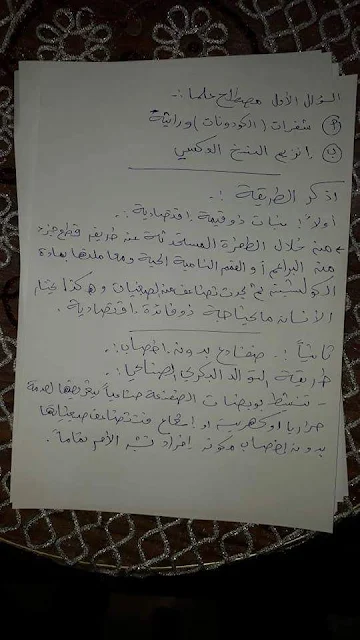 السؤال الأول مصطلح علمي :-
(أ) شفرات (الكودونات) وراثية
(ب) انزيم النسخ العكسي
اذكر الطريقة :-
أولاً : نبات ذو قيمة اقتصادية :-
من خلال الطفرة المستحدثة عن طريق قطع جزء
من البراعم أو القمم النامية الحية ومعاملتها بمادة
الكولشيسين ثم يحدث تضاعف عدد الصبغيات وهكذا يختار
الانسان ما يحتاجه ذو فائدة اقتصادية .
ثانياً : ضفادع بدون اخصاب :-
طريقة التوالد البكري الصناعي :-
- تنشط بويضات الضفدعة صناعياً بتعرضها لصدمة
حرارية او كهربية او إشعاع فتتضاعف صبغياتها
بدون اخصاب مكونه افراد تشبه الأم تماماً .